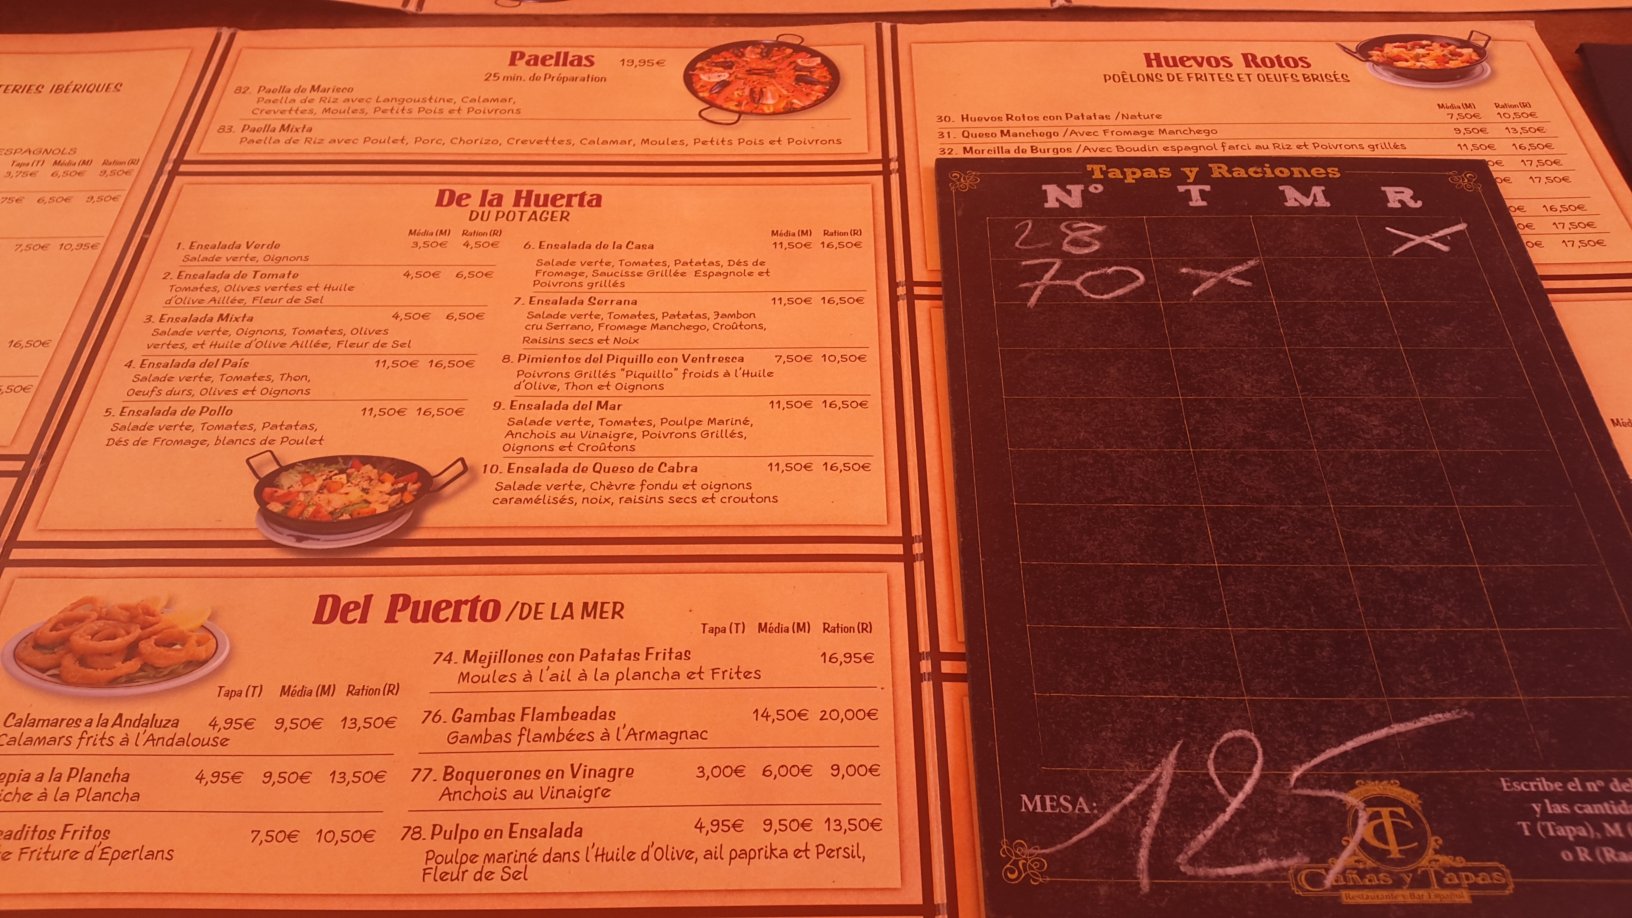 TERIES IBÉRIQUES
ESPAGNOLS
Tapa (T) Média (M) Ration (R)
3,75€ 6,50€ 9,50€
75€ 6,50€ 9,50€
7,50€ 10,95€
16,50€
5,50€
Paellas 19,95€
25 min. de Préparation
82. Paella de Marisco
Paella de Riz avec Langoustine, Calamar,
Crevettes, Moules, Petits Pois et Poivrons
83. Paella Mixta
Paella de Riz avec Poulet, Porc, Chorizo, Crevettes, Calamar, Moules, Petits Pois et Poivrons
De la Huerta
DU POTAGER
Média (M) Ration (R)
1. Ensalada Verde 3,50€ 4,50€
Salade verte, Oignons
2. Ensalada de Tomate 4,50€ 6,50€
Tomates, Olives vertes et Huile
d'Olive Aillée, Fleur de Sel
3. Ensalada Mixta 4,50€ 6,50€
Salade verte, Oignons, Tomates, Olives
vertes, et Huile d'Olive Aillée, Fleur de Sel
4. Ensalada del País 11,50€ 16,50€
Salade verte, Tomates, Thon,
Oeufs durs, Olives et Oignons
5. Ensalada de Pollo 11,50€ 16,50€
Salade verte, Tomates, Patatas,
Dés de Fromage, blancs de Poulet
Média (M) Ration (R)
6. Ensalada de la Casa 11,50€ 16,50€
Salade verte, Tomates, Patatas, Dés de
Fromage, Saucisse Grillée Espagnole et
Poivrons grillés
7. Ensalada Serrana 11,50€ 16,50€
Salade verte, Tomates, Patatas, Jambon
cru Serrano, Fromage Manchego, Croûtons,
Raisins secs et Noix
8. Pimientos del Piquillo con Ventresca 7,50€ 10,50€
Poivrons Grillés "Piquillo" froids à l'Huile
d'Olive, Thon et Oignons
9. Ensalada del Mar 11,50€ 16,50€
Salade verte, Tomates, Poulpe Mariné,
Anchois au Vinaigre, Poivrons Grillés,
Oignons et Croûtons
10. Ensalada de Queso de Cabra 11,50€ 16,50€
Salade verte, Chèvre fondu et oignons
caramélisés, noix, raisins secs et croutons
Del Puerto / DE LA MER
Tapa (T) Média (M) Ration (R)
Calamares a la Andaluza 4,95€ 9,50€ 13,50€
Calamars frits à l'Andalouse
epia a la Plancha 4,95€ 9,50€ 13,50€
iche à la Plancha
eaditos Fritos 7,50€ 10,50€
e Friture d'Eperlans
Tapa (T) Média (M) Ration (R)
74. Mejillones con Patatas Fritas 16,95€
Moules à l'ail à la plancha et Frites
76. Gambas Flambeadas 14,50€ 20,00€
Gambas flambées à l'Armagnac
77. Boquerones en Vinagre 3,00€ 6,00€ 9,00€
Anchois au Vinaigre
78. Pulpo en Ensalada 4,95€ 9,50€ 13,50€
Poulpe mariné dans l'Huile d'Olive, ail paprika et Persil,
Fleur de Sel
Huevos Rotos
POÊLONS DE FRITES ET OEUFS BRISÉS
Média (M) Ration (R)
30. Huevos Rotos con Patatas /Nature 7,50€ 10,50€
31. Queso Manchego /Avec Fromage Manchego 9,50€ 13,50€
32. Morcilla de Burgos /Avec Boudin espagnol farci au Riz et Poivrons grillés 11,50€ 16,50€
0€ 17,50€
0€ 17,50€
0€ 16,50€
0€ 17,50€
0€ 17,50€
Méd
Tapas y Raciones
Nº T M R
28 X
70 X
MESA: 125
Escribe el nº del
y las cantida
T (Tapa), M (
o R (Ra
CT
Cañas y Tapas
Restaurante y Bar Español